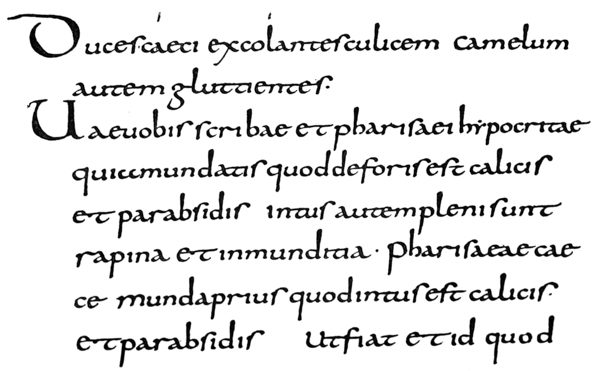 Duces caeci excolantes culicem camelum
autem gluttientes.
Uae uobis scribae et pharisaei hypocritae
qui mundatis quod deforis est calicis
et parabsidis intus autem pleni sunt
rapina et inmunditia · pharisaee cae
ce munda prius quod intus est calicis.
et parabsidis ut fiat et id quod